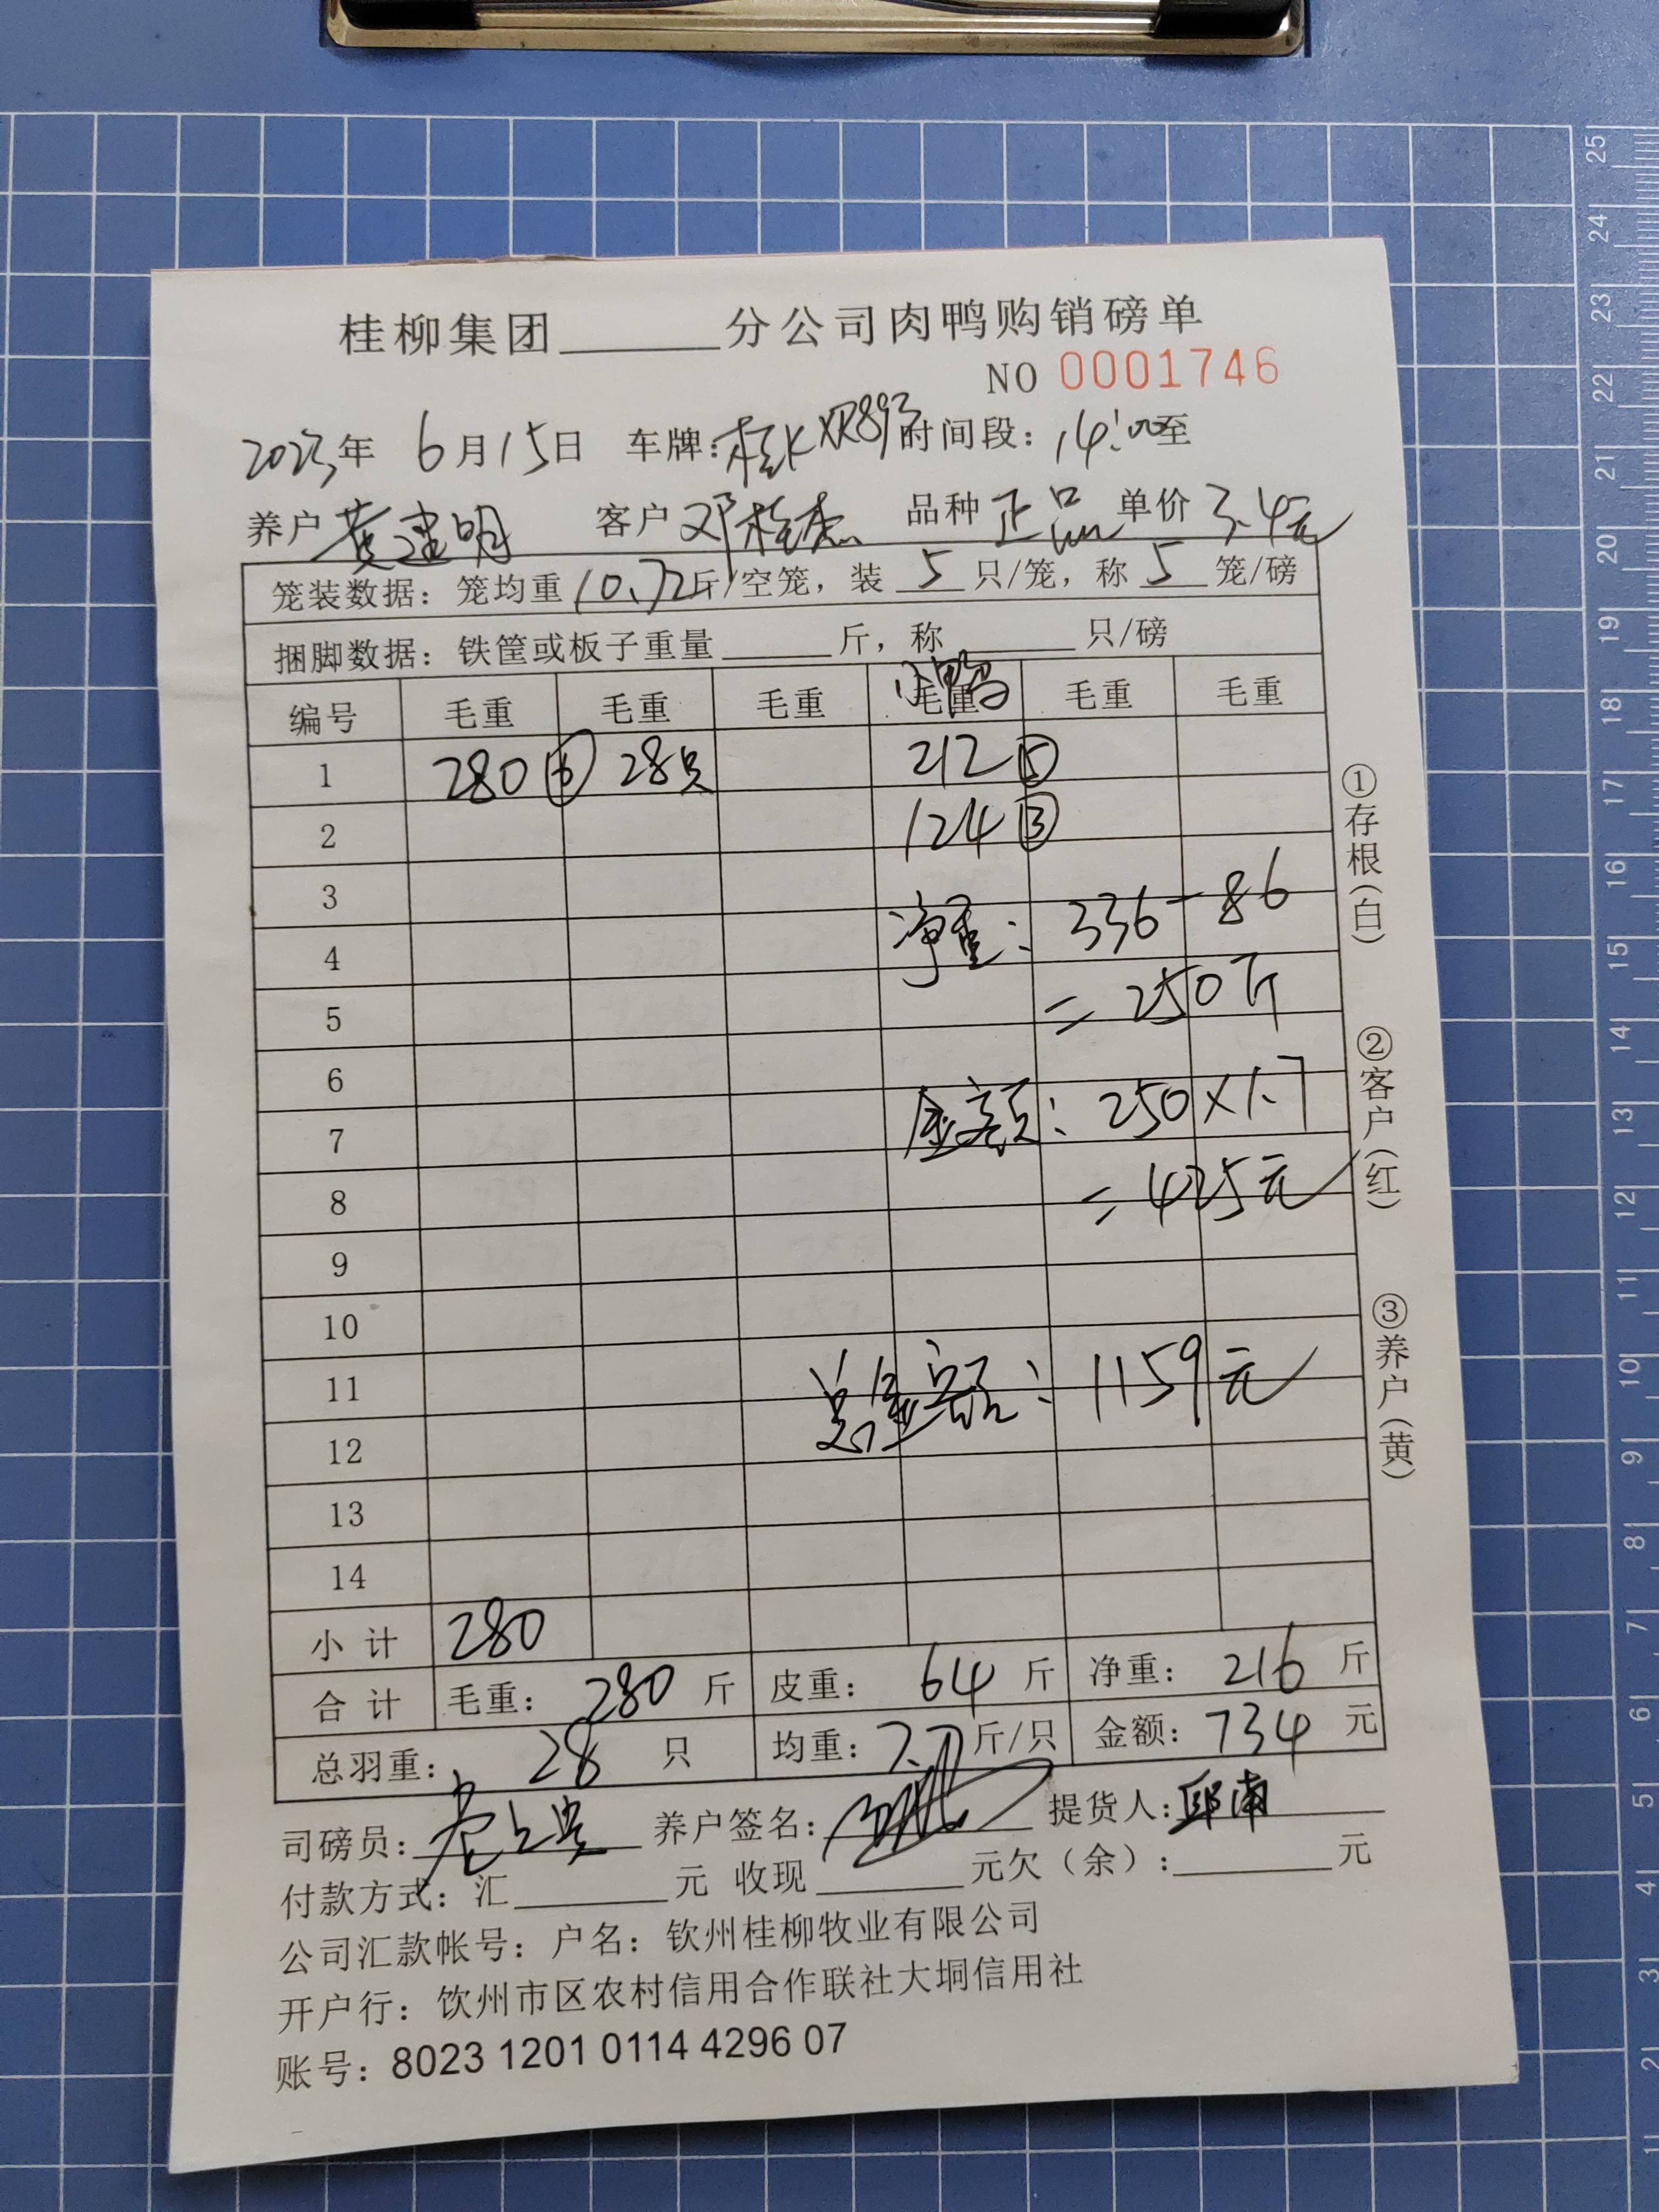 桂柳集团______分公司肉鸭购销磅单
NO 0001746
2023年 6月15日 车牌:桂K XR893 时间段: 14:00至
养户 黄建明 客户 邓桂杰 品种 正品 单价 3.4元
笼装数据: 笼均重 10.72斤/空笼, 装 5 只/笼, 称 5 笼/磅
捆脚数据: 铁筐或板子重量______斤, 称______只/磅
小鸭
编号 毛重 毛重 毛重 毛重 毛重 毛重
1 280⑥ 28只 212⑤
2 124③
3
净重: 336-86
4
=250斤
5
6
金额: 250×1.7
7
=425元
8
9
10
总金额: 1159元
11
12
13
14
小计 280
合计 毛重: 280 斤 皮重: 64 斤 净重: 216 斤
总羽重: 28 只 均重: 7.7斤/只 金额: 734 元
司磅员: 养户签名: 提货人: 邱南
付款方式: 汇______元 收现______元欠(余):______元
公司汇款帐号: 户名: 钦州桂柳牧业有限公司
开户行: 钦州市区农村信用合作联社大垌信用社
账号: 8023 1201 0114 4296 07
①存根(白)
②客户(红)
③养户(黄)
25
24
23
22
21
20
19
18
17
16
15
14
13
12
11
10
9
8
7
6
5
4
3
2
1